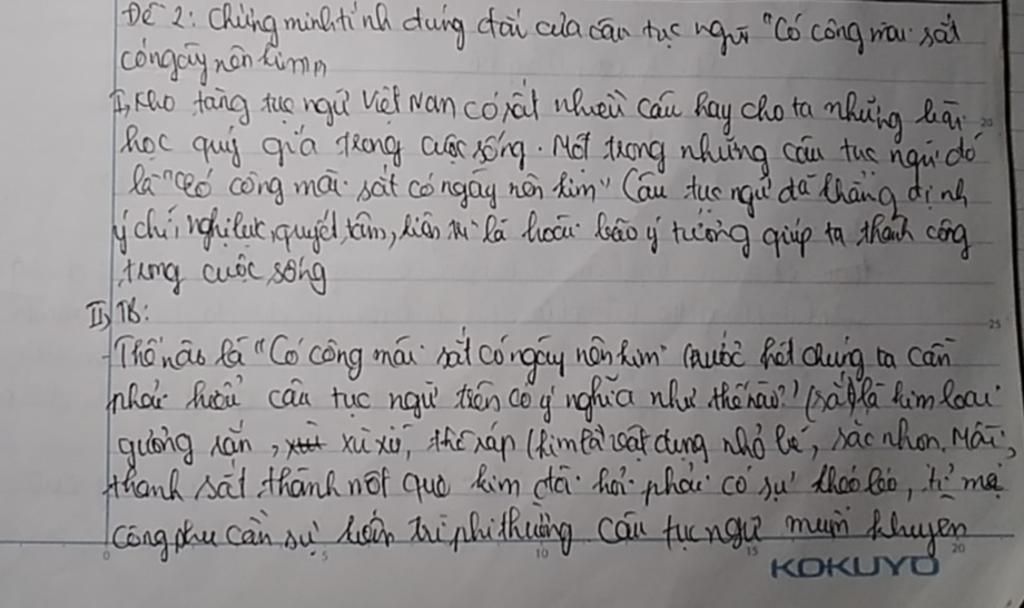 Đề 2: Chứng minh tính đúng đắn của câu tục ngữ "Có công mài sắt
có ngày nên kim"
I, Kho tàng tục ngữ Việt Nam có rất nhiều câu hay cho ta những bài
học quý giá trong cuộc sống. Một trong những câu tục ngữ đó
là "Có công mài sắt có ngày nên kim" Câu tục ngữ đã khẳng định
ý chí, nghị lực, quyết tâm, kiên trì là hoài bão ý tưởng giúp ta thành công
trong cuộc sống
II, TB:
- Thế nào là "Có công mài sắt có ngày nên kim" trước hết chúng ta cần
phải hiểu câu tục ngữ trên có ý nghĩa như thế nào? (sắt) là kim loại
cứng rắn, xù xì, thô ráp (kim là vật dụng nhỏ bé, sắc nhọn. Mài
thanh sắt thành một que kim đòi hỏi phải có sự khéo léo, tỉ mỉ
công phu cần sự kiên trì phi thường Câu tục ngữ muốn khuyên
0 5 10 15 20
25
20
KOKUYO